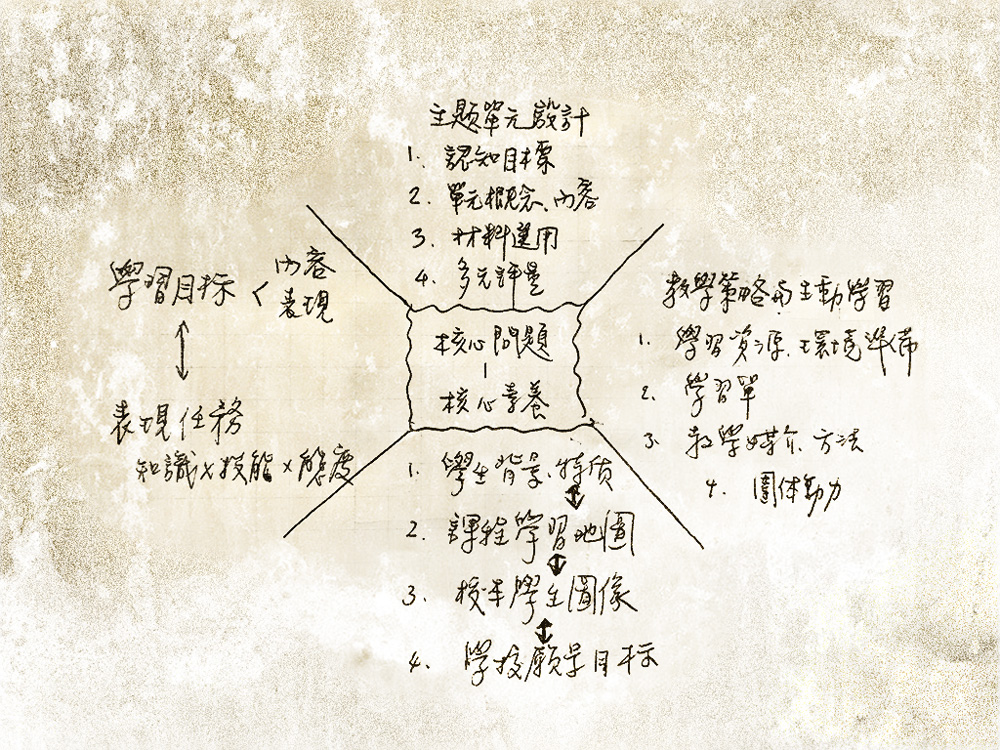 主題單元設計
1. 認知目標
2. 單元概念、內容
3. 材料選用
4. 多元評量
學習目标 < 內容
表現
表現任務
知識×技能×態度
核心問題
核心素養
教學策略与主動學習
1. 學習資源、環境準備
2. 學習單
3. 教學媒介、方法
4. 團体動力
1. 學生背景、特质
2. 課程學習地圖
3. 校本學生圖像
4. 學校願景目标